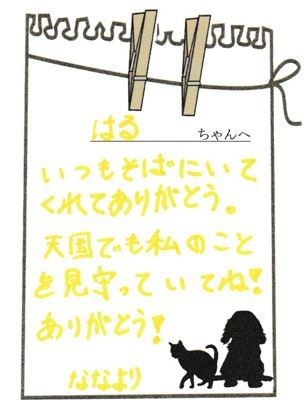 はる ちゃんへ
いつもそばにいて
くれてありがとう。
天国でも私のこと
を見守っていてね!
ありがとう!
ななより